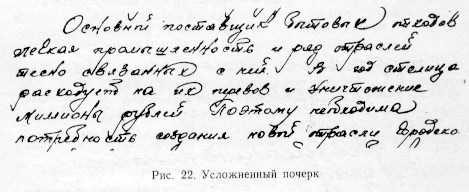 Основной поставщик бытовых отходов
ческая промышленность и ряд отраслей
тесно связанных с ней. В год столица
расходует на их перевоз и уничтожение
миллионы рублей Поэтому необходима
потребность создания новой отрасли городско
Рис. 22. Усложненный почерк